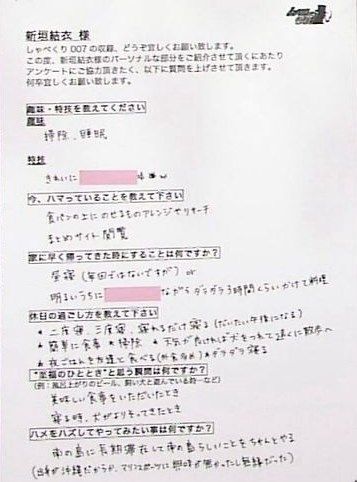 新垣結衣 様
しゃべくり007の収録、どうぞ宜しくお願い致します。
この度、新垣結衣様のパーソナルな部分をご紹介させて頂くにあたり
アンケートにご協力頂きたく、以下に質問を上げさせて頂きます。
何卒宜しくお願い致します。
趣味・特技を教えてください
趣味
掃除、睡眠
特技
きれいに
今、ハマっていることを教えて下さい
食パンの上にのせるものアレンジやリサーチ
まとめサイト閲覧
家に早く帰ってきた時にすることは何ですか?
昼寝(毎回ではないですが) or
明るいうちに ながら ダラダラ3時間くらいかけて料理
休日の過ごし方を教えて下さい
★ 二度寝、三度寝、寝れるだけ寝る(だいたい午後になる)
★ 簡単に食事 ★ 掃除 ★ 天気が良ければ犬をつれて遠くに散歩へ
★ 夜ごはんを友達と食べる(外食含め) ★ ダラダラ寝る
"至福のひととき"と思う瞬間は何ですか?
(例:風呂上がりのビール、飼い犬と遊んでいる時…など)
美味しい食事をいただいたとき
寝る時、犬がよりそってきたとき
ハメをハズしてやってみたい事は何ですか?
南の島に長期滞在して南の島らしいことをちゃんとやる
(出身が沖縄だからか、マリンスポーツに興味が無かったし無縁だった)